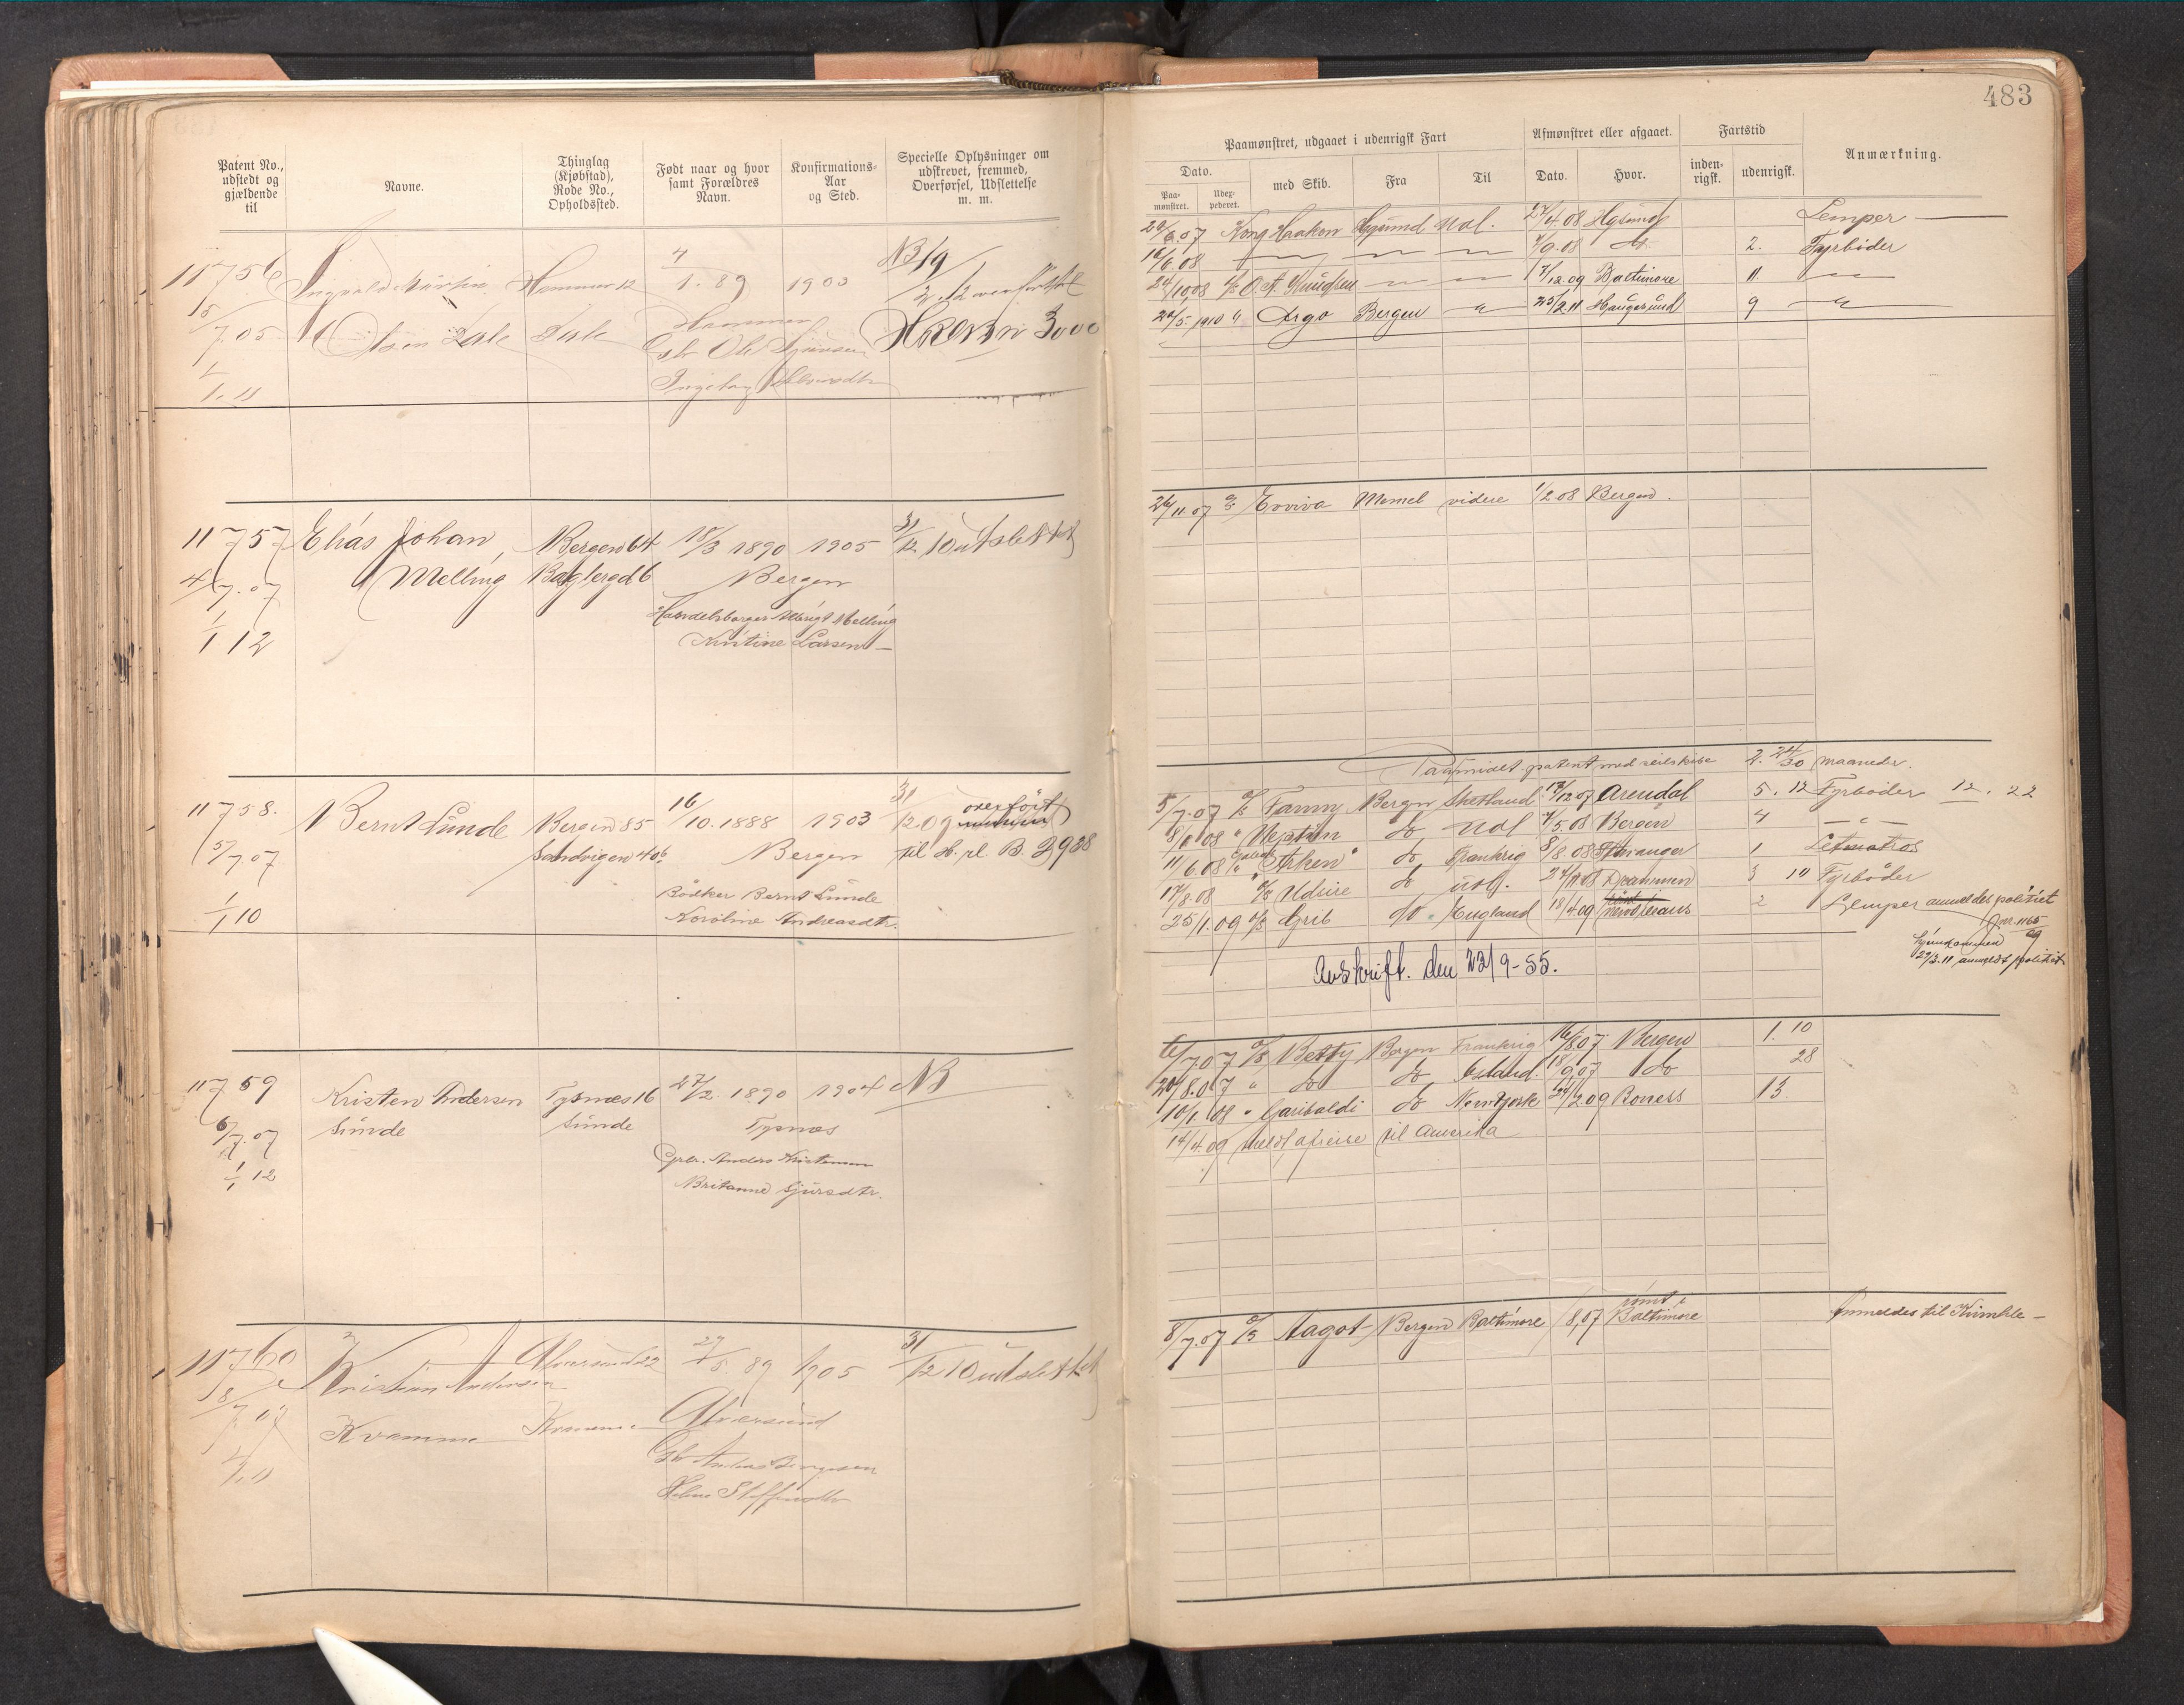 483
Patent No., udstedt og gjældende til
Navne.
Thinglag (Kjøbstad), Rode No., Opholdssted.
Født naar og hvor samt Forældres Navn.
Konfirmations-Aar og Sted.
Specielle Oplysninger om udskrevet, fremmed, Overførsel, Udslettelse m. m.
Paamønstret, udgaaet i udenrigsk Fart
Afmønstret eller afgaaet.
Fartstid
Anmærkning.
Dato.
Paa-mønstret.
Uder-pederet.
med Skib.
Fra
Til
Dato.
Hvor.
inden-rigsk.
udenrigsk.
11756 Ingvald Martin Hammer 12 4/1. 89 1903 NB 19
15/7 05 Olsen Dale Dale Hammer
1/1. 11 Ingeborg
3000
20/6.07 Kong Haakon Hgsund Udl. 27/4.08 Hgsund Lemper —
10/6.08 — — — 7/9.08 do 2. Fyrbøder
24/10.08 O. A. Knudsen — — 17/12.09 Baltimore 11 — " —
20/5. 1910 " Argo Bergen — " — 25/2.11 Haugesund 9 — " —
11757 Elias Johan Bergen 64 18/3 1890 1905 31/12 10 utslettet
4/7.07 Melling Baglergd 6 Bergen
1/1 12 Handelsborger Melling
Kristine Larsen —
26/11.07 Evviva Memel videre 1/2 08 Bergen.
11758. Bernt Sunde Bergen 85 16/10. 1888 1903 31/12 09 overført
5/7 07 Sandvigen 40b Bergen til H. pl. B. 2938
1/1 10 Bødker Bernt Sunde
Karoline Andreasdtr.
patent med seilskibe 2. 24/30 maaneder.
5/7.07 Fanny Bergen Shetland 17/12 07 Arendal 5. 12 Fyrbøder 12. 22
8/1 08 " Neptun do Udl 7/5.08 Bergen 4 — " —
11/6.08 " Arken " do Frankrig 8/8.08 Stavanger 1 Letmatros
17/8.08 Udsire do Udl. 27/11 08 Drammen 3 10 Fyrbøder
25/1.09 Grib do England 18/4.09 rømt 2 Lemper anmeldes politiet
Jnr. 1165/09
Hjemkommen
29/3.11 anmeldt politiet
Avskrift. den 23/9-55.
11759 Kristen Andersen Tysnæs 16 27/2. 1890 1904 NB
6/7.07 Sunde Sunde Tysnæs
1/1 12 Gbr. Anders Kristensen
Britanne Sjursdtr.
6/7.07 Betty Bergen Frankrig 16/8.07 Bergen 1. 10
20/8.07 " do do Island. 18/9.07 do 28
10/1 08 " Garibaldi do New York 24/2 09 Boness 13.
14/4.09 meldt afreise til Amerika
11760 Kristian Andersen Alversund 22 27/5. 89 1905 31/12 10 utslettet
8/7 07 Kvamme Kvamme Alversund
1/1.11
8/7.07 Aagot Bergen Baltimore /8.07 rømt i Baltimore Anmeldes til